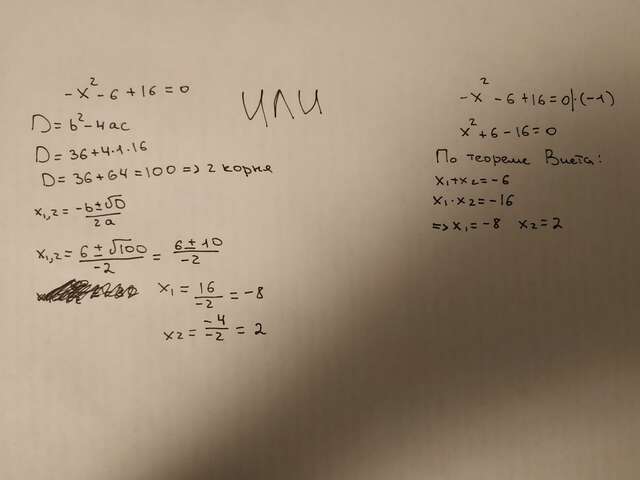 -x² - 6 + 16 = 0
D = b² - 4ac
D = 36 + 4·1·16
D = 36 + 64 = 100 => 2 корня
x₁,₂ = (-b ± √D)/2a
x₁,₂ = (6 ± √100)/-2 = (6 ± 10)/-2
x₁ = 16/-2 = -8
x₂ = -4/-2 = 2
ИЛИ
-x² - 6 + 16 = 0 |·(-1)
x² + 6 - 16 = 0
По теореме Виета:
x₁ + x₂ = -6
x₁ · x₂ = -16
=> x₁ = -8 x₂ = 2